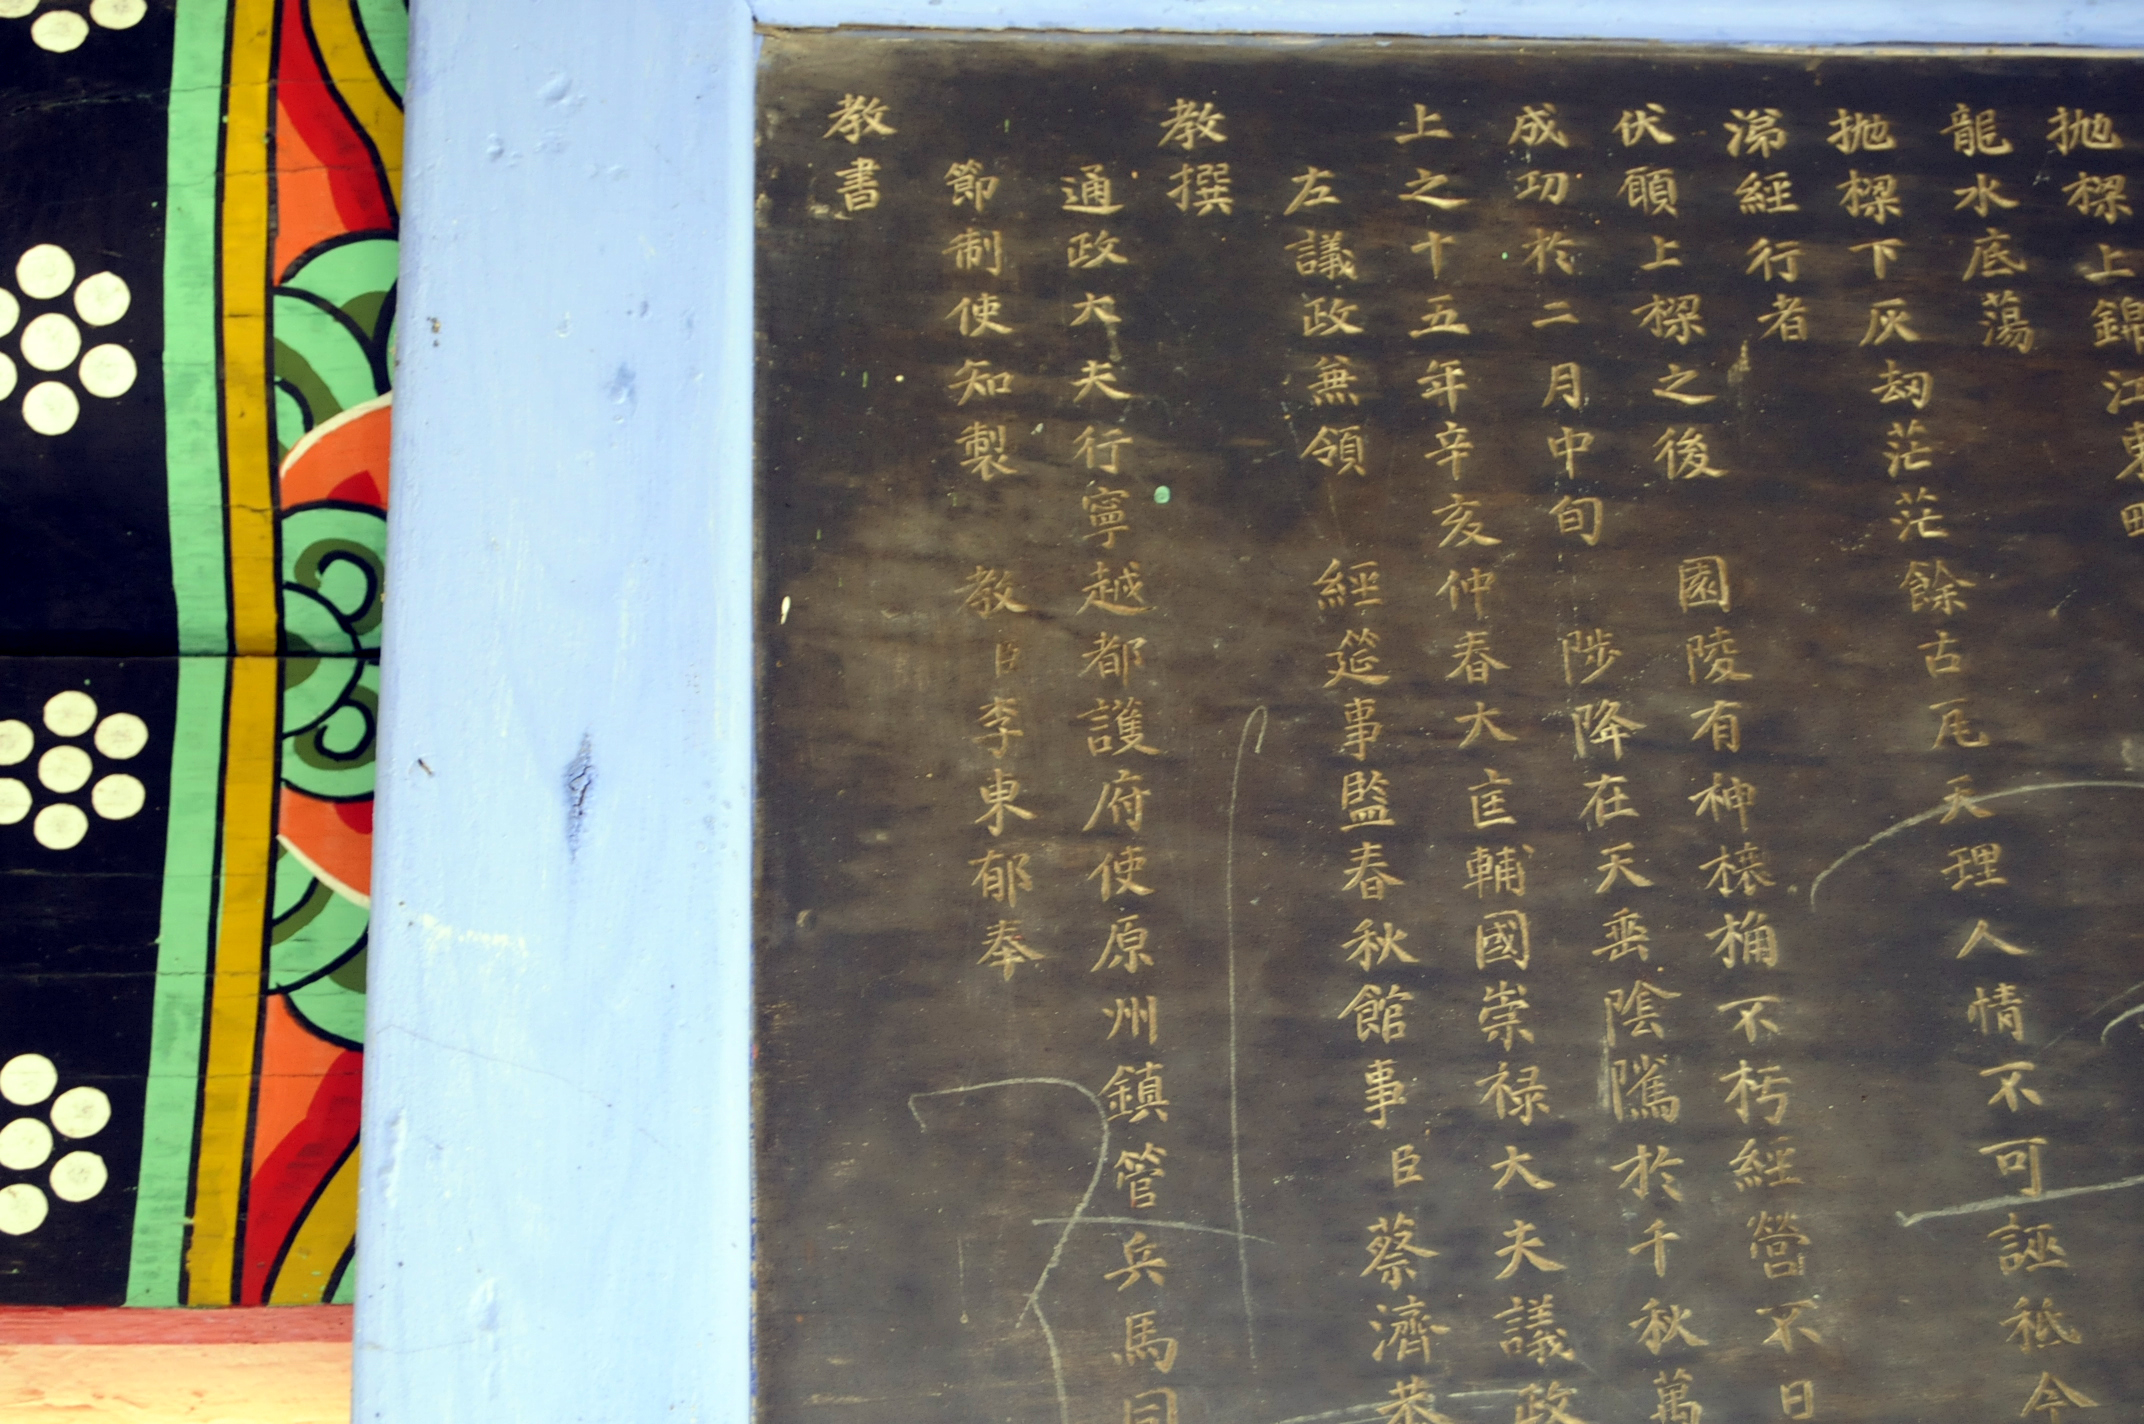 抛樑上錦江東
龍水底蕩
抛樑下灰刼茫茫餘古瓦天理人情不可誣秪今
經行者
伏願上樑之後 園陵有神榱桷不朽經營不日
成功於二月中旬 陟降在天垂陰隲於千秋萬
上之十五年辛亥仲春大匡輔國崇禄大夫議政
左議政兼領 經筵事監春秋館事臣蔡濟恭
教撰
通政大夫行寧越都護府使原州鎮管兵馬同
節制使知製 教臣李東郁奉
教書